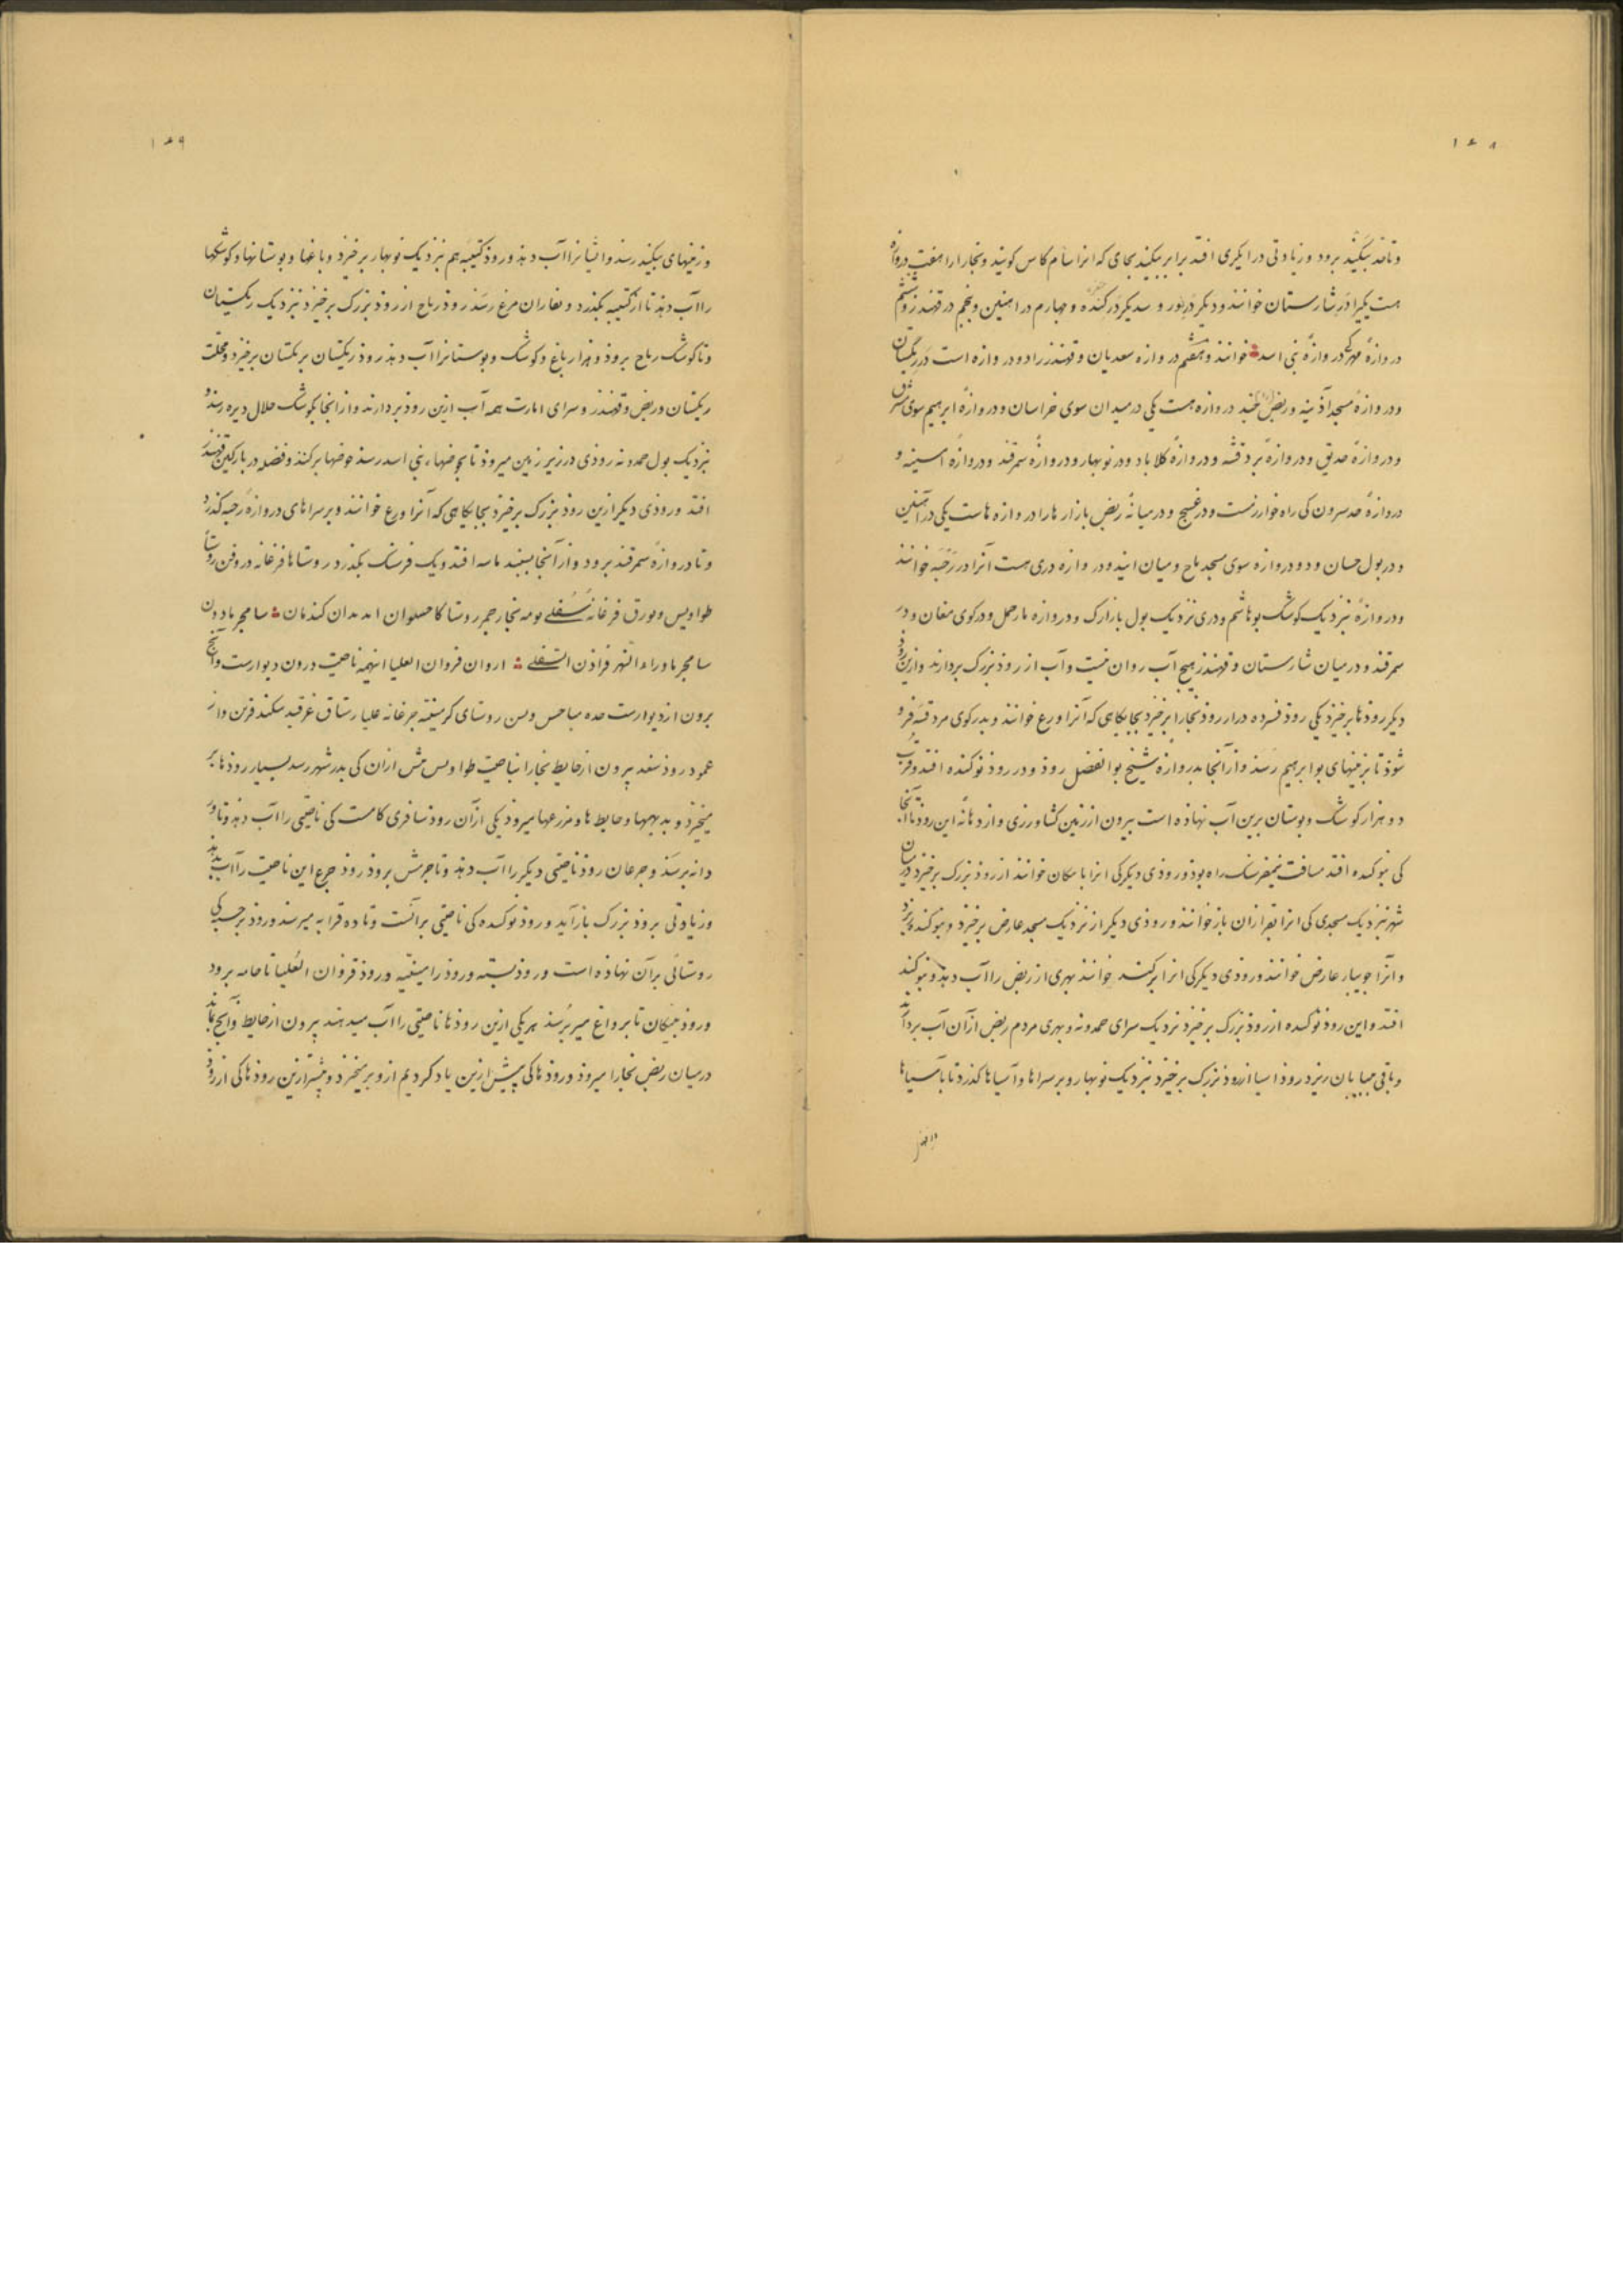 ۱۴۸
و تا قد بیکند برود و زیادتی در ابکری افتد برابر بیکند بجای که انرا سام کاس کویند و بخارا را هفت دروازه
هست یکیرا در شارستان خوانند و دیکر در نور و سدیکر در کنده و چهارم در اهنین و پنجم در قهندز و ششم
دروازهٔ مهر کی دروازهٔ بنی اسد خوانند و هفتم دروازه سعدیان و قهندز را دو دروازه است در ریکستان
و دروازهٔ مسجد آذینه و ربض چند دروازه هست یکی در میدان سوی خراسان و دروازهٔ ابرهیم سوی شرق
و دروازهٔ حدیق و دروازهٔ بردقشه و دروازهٔ کلاباد و در نوبهار و دروازهٔ سمرقند و دروازهٔ اسینه و
دروازهٔ حدسرون کی راه خوارزمست و در غسج و در میانهٔ ربض بازارها را دروازه هاست یکی در آهنین
و در بول حسان و دو دروازه سوی مسجد باح و میان ایند و دروازه دری هست آنرا در رخبه خوانند
و دروازهٔ نزدیک کوشک بوهاشم و دری نزدیک بول بازارک و دروازه مارحمل و در کوی مغان و در
سمرقند و در میان شارستان و قهندز هیچ آب روان نیست و آب از روذ بزرک بردارند و ازین روذ
دیکر روذها برخیزد یکی روذ فسرده در از روذ بخارا برخیزد بجایکاهی که آنرا ورع خوانند و بدر کوی مردقسه فرو
شوذ تا بزمینهای بوابرهیم رسد و از آنجا بدروازهٔ شیخ بوالفضل روذ و در روذ نوکنده افتد و قرب
دو هزار کوشک و بوستان برین آب نهاذه است بیرون از زمین کشاورزی و از دهانه این روذ تا آنجا
کی بنوکده افتد مسافت نیم فرسنک راه بوذ و روذی دیکر کی انرا باسکان خوانند از روذ بزرک برخیزد در میان
شهر نزدیک مسجدی کی انرا بقرازان باز خوانند و روذی دیکر از نزدیک مسجد عارض برخیزد و بنوکنده ریزد
و انرا جویبار عارض خوانند و روذی دیکر کی انرا برکند خوانند بهری از ربض را اب دهذ و بنوکند
افتد و این روذ نوکسده از روذ بزرک برخیزد نزدیک سرای حمدونه و بهری مردم ربض ازان آب بردارند
و باقی ببیابان ریزد روذ اسیا از روذ بزرک برخیزد نزدیک نوبهار و بر سراها و آسیاها کذرد تا باسیاها
۱۴۹
و زمینهای بیکند رسد و ایشانرا آب دهذ و روذ کتیبه هم نزدیک نوبهار برخیزد و باغها و بوستانها و کوشکها
را آب دهذ تا از کتیبه بکذرد و بغاران مرغ رسد روذ رباح از روذ بزرک برخیزد نزدیک ریکستان
و تا کوشک رباح بروذ و هزار باغ و کوشک و بوستانرا آب دهذ روذ ریکستان بریکستان برخیزد و محلت
ریکستان و ربض و قهندز و سرای امارت همه آب ازین روذ بردارند و از انجا بکوشک جلال دیره رسد و
نزدیک بول حمدونه روذی در زیر زمین میروذ تا بحوضهاء بنی اسد رسد حوضها برکند و فضله در بارکین قهندز
افتد و روذی دیکر ازین روذ بزرک برخیزد بجایکاهی که آنرا ورغ خوانند و بر سراهای دروازهٔ رخبه کذرد
و تا دروازهٔ سمرقند برود و از آنجا بسبید ماسه افتد و یک فرسنک بکذرد روستاها فرغانه در وفرن روستا
طواویس و بورق فرغانه سُفلی بومه بخار جمر روستا کاحسلوان اندیدان کندمان سامجر مادون
سامجر ماوراء النهر فراذن السفلی اروان فروان العلیا اینهمه ناحیت درون دیوارست و آنچ
برون از دیوارست حده ساحس وبس روستای کرمینیه جرغانه علیا رستاق غرقید سکند فربن وانه
عمود روذ سغد بیرون از حایط بخارا بناحیت طواویس مش ازان کی بدر شهر رسد بسیار روذها بر
میخیزد و بدیهها و حایط ها و مزرعها میروذ یکی ازان روذ سافری کامست کی ناحیتی را آب دهذ و تا ور
دانه برسد و جرعان روذ ناحیتی دیکر را آب دهذ و تا جرمش بروذ روذ جرع این ناحیت را آب بدهد
و زیادتی بروذ بزرک باز آید و روذ نوکنده کی ناحیتی برآنست و تا ده قرابه میرسد و روذ برجسب کی
روستائی برآن نهاذه است و روذ بسته و روذ رامیثنه و روذ فروان العُلیا تا حامه برود
و روذ بیکان تا برداغ میبرسد هر یکی ازین روذها ناحیتی را آب میدهند بیرون از حایط و آنچ بماند
در میان ربض بخارا میروذ و روذها کی پیش ازین یاد کردیم ازو برمیخیزد و بیشتر ازین روذها کی از روذ